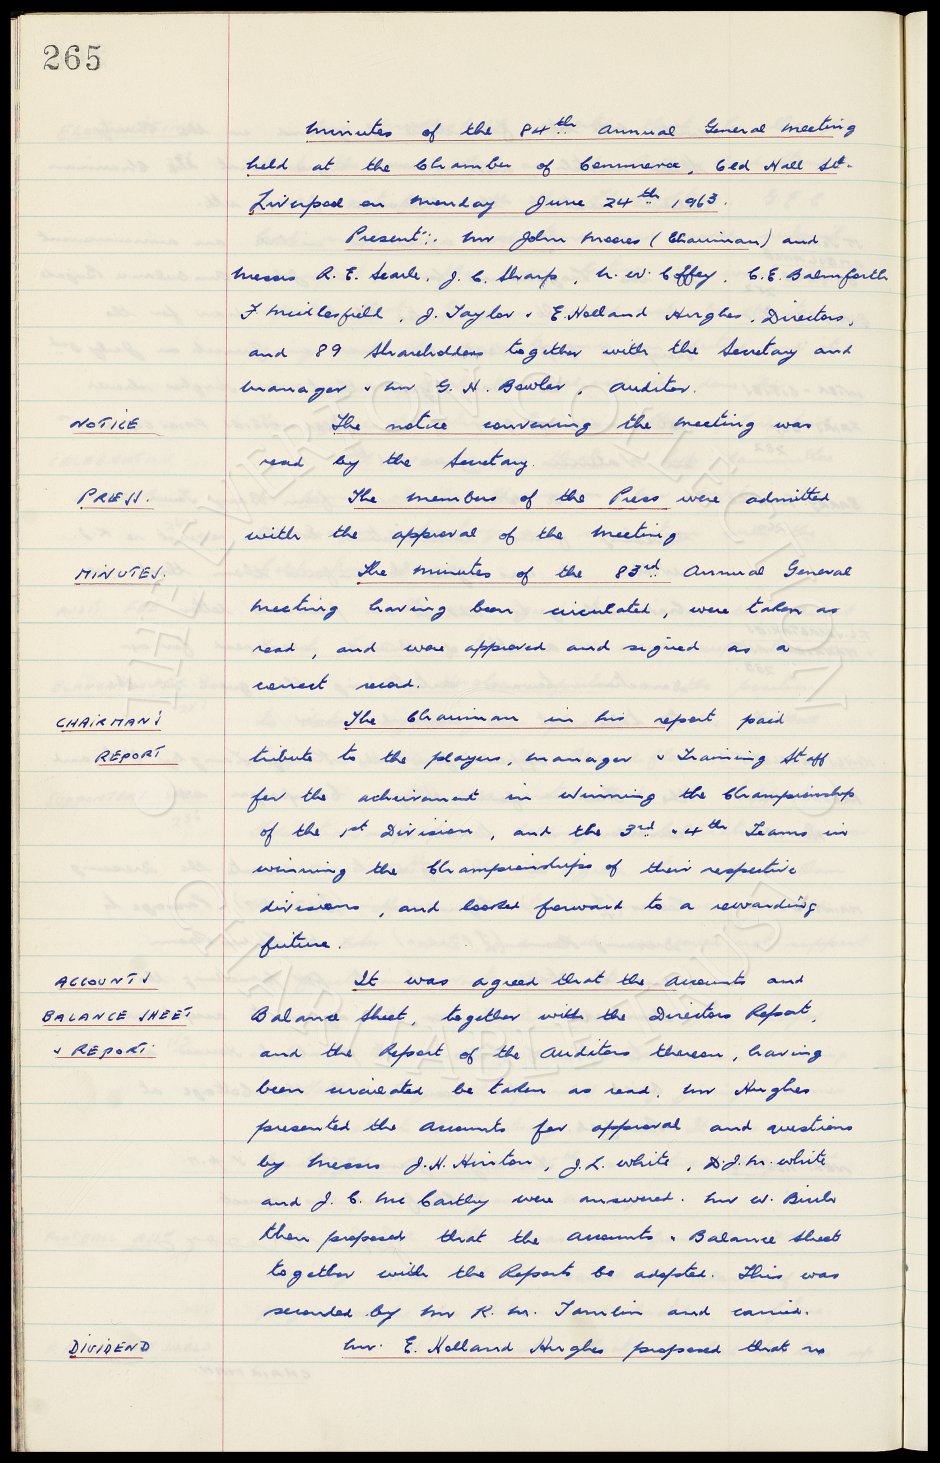 265
Minutes of the 84th Annual General Meeting
held at the Chamber of Commerce, Old Hall St.
Liverpool on Monday June 24th 1963.
Present:. Mr John Moores (Chairman) and
Messrs R. E. Searle, J. C. Sharp, N. W. Coffey, C. E. Balmforth
F. Micklesfield, J. Taylor & E. Holland Hughes, Directors,
and 89 Shareholders together with the Secretary and
Manager & Mr G. H. Bowler, Auditor.
NOTICE The notice convening the meeting was
read by the Secretary.
PRESS. The members of the Press were admitted
with the approval of the Meeting
MINUTES. The minutes of the 83rd Annual General
Meeting having been circulated, were taken as
read, and were approved and signed as a
correct record.
CHAIRMAN'S The Chairman in his report paid
REPORT tribute to the players, manager & Training Staff
for the achievement in winning the Championship
of the 1st Division, and the 3rd & 4th Teams in
winning the Championships of their respective
divisions, and looked forward to a rewarding
future.
ACCOUNTS It was agreed that the Accounts and
BALANCE SHEET Balance Sheet, together with the Directors Report,
& REPORT. and the Report of the Auditors thereon, having
been circulated be taken as read. Mr Hughes
presented the Accounts for approval and questions
by Messrs J. H. Hinton, J. L. White, D. J. M. White
and J. C. Mc Carthy were answered. Mr W. Birch
then proposed that the Accounts & Balance Sheet
together with the Reports be adopted. This was
seconded by Mr K. M. Tamlin and carried.
DIVIDEND Mr. E. Holland Hughes proposed that no
THE EVERTON COLLECTION
CHARITABLE TRUST